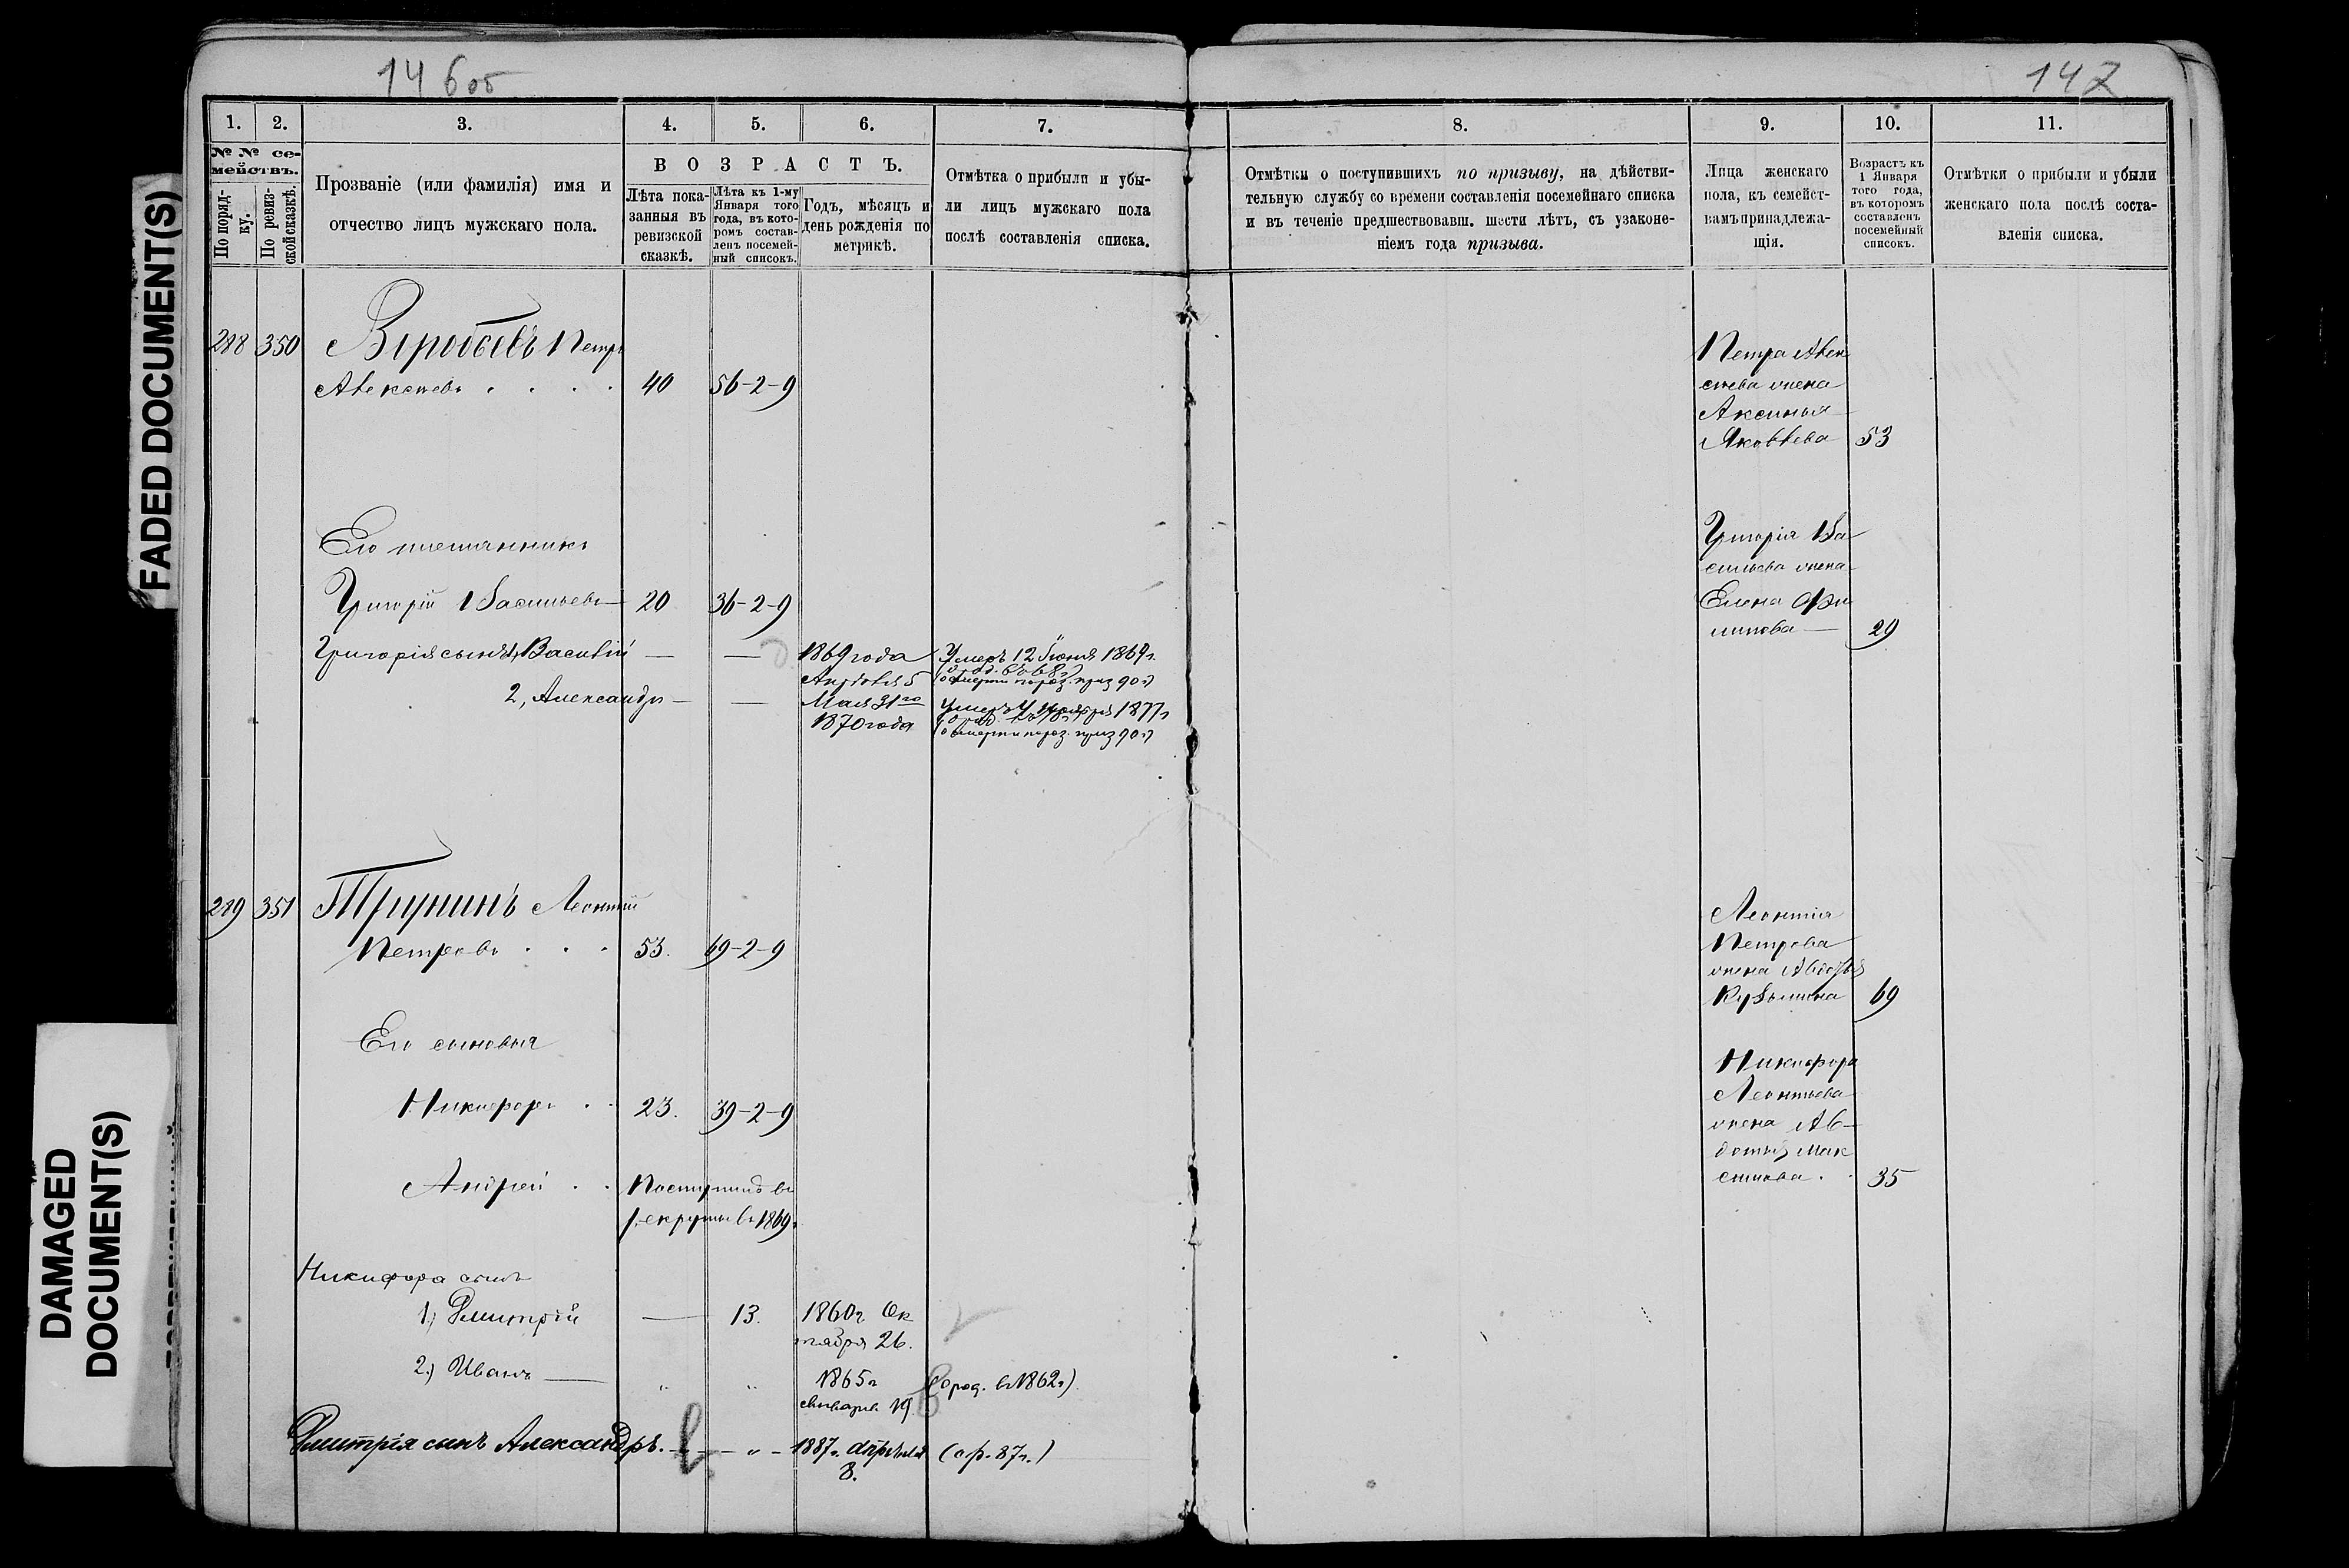 146 об
147
FADED DOCUMENT(S)
DAMAGED
DOCUMENT(S)
1. 2. 3. 4. 5. 6. 7.
№ № се-
мействъ.
По поряд-
ку.
По ревиз-
ской сказкѣ.
Прозваніе (или фамилія) имя и
отчество лицъ мужскаго пола.
ВОЗРАСТЪ.
Лѣта пока-
занныя въ
ревизской
сказкѣ.
Лѣта къ 1-му
Января того
года, въ кото-
ромъ состав-
ленъ посемей-
ный списокъ.
Годъ, мѣсяцъ и
день рожденія по
метрикѣ.
Отмѣтка о прибыли и убы-
ли лицъ мужскаго пола
послѣ составленія списка.
288 350 Воробьевъ Петръ
Алексѣевъ . . . . 40 56-2-9
Его племянникъ
Григорій Васильевъ 20 36-2-9
Григорія сынъ 1, Василій — — 1869 года Умеръ 12 Іюня 1869 г.
2, Александръ — — Мая 31го
1870 года
289 351 Трунинъ Леонтій
Петровъ . . . 53. 69-2-9
Его сыновья
Никифоръ . . 23. 39-2-9
Андрей . . Поступилъ въ
рекруты въ 1869 г.
Никифора сынъ
1) Дмитрій — 13. 1860 г. Ок
тября 26.
2.) Иванъ — „ „ 1865 г (о род. въ 1862 г)
Января 19.
Дмитрія сынъ Александръ. — „ — 1887 г. Апрѣля (о р. 87 г.)
8.
8. 9. 10. 11.
Отмѣтки о поступившихъ по призыву, на дѣйстви-
тельную службу со времени составленія посемейнаго списка
и въ теченіе предшествовавш. шести лѣтъ, съ узаконе-
ніемъ года призыва.
Лица женскаго
пола, къ семейст-
вамъ принадлежа-
щія.
Возрастъ къ
1 Января
того года,
въ которомъ
составленъ
посемейный
списокъ.
Отмѣтки о прибыли и убыли
женскаго пола послѣ соста-
вленія списка.
Петра Алек
сѣева жена
Аксинья
Яковлева 53
Григорія Ва
сильева жена
Елена Фи
липова — 29
Леонтія
Петрова
жена Авдотья
Кузьмина 69
Никифора
Леонтьева
жена Ав-
дотья Мак
симова . 35